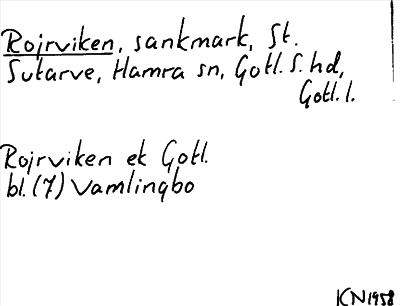 Rojrviken, sankmark, St.
Sutarve, Hamra sn, Gotl. S. hd,
Gotl. l.
Rojrviken ek Gotl.
bl. (7) Vamlingbo
KN 1958